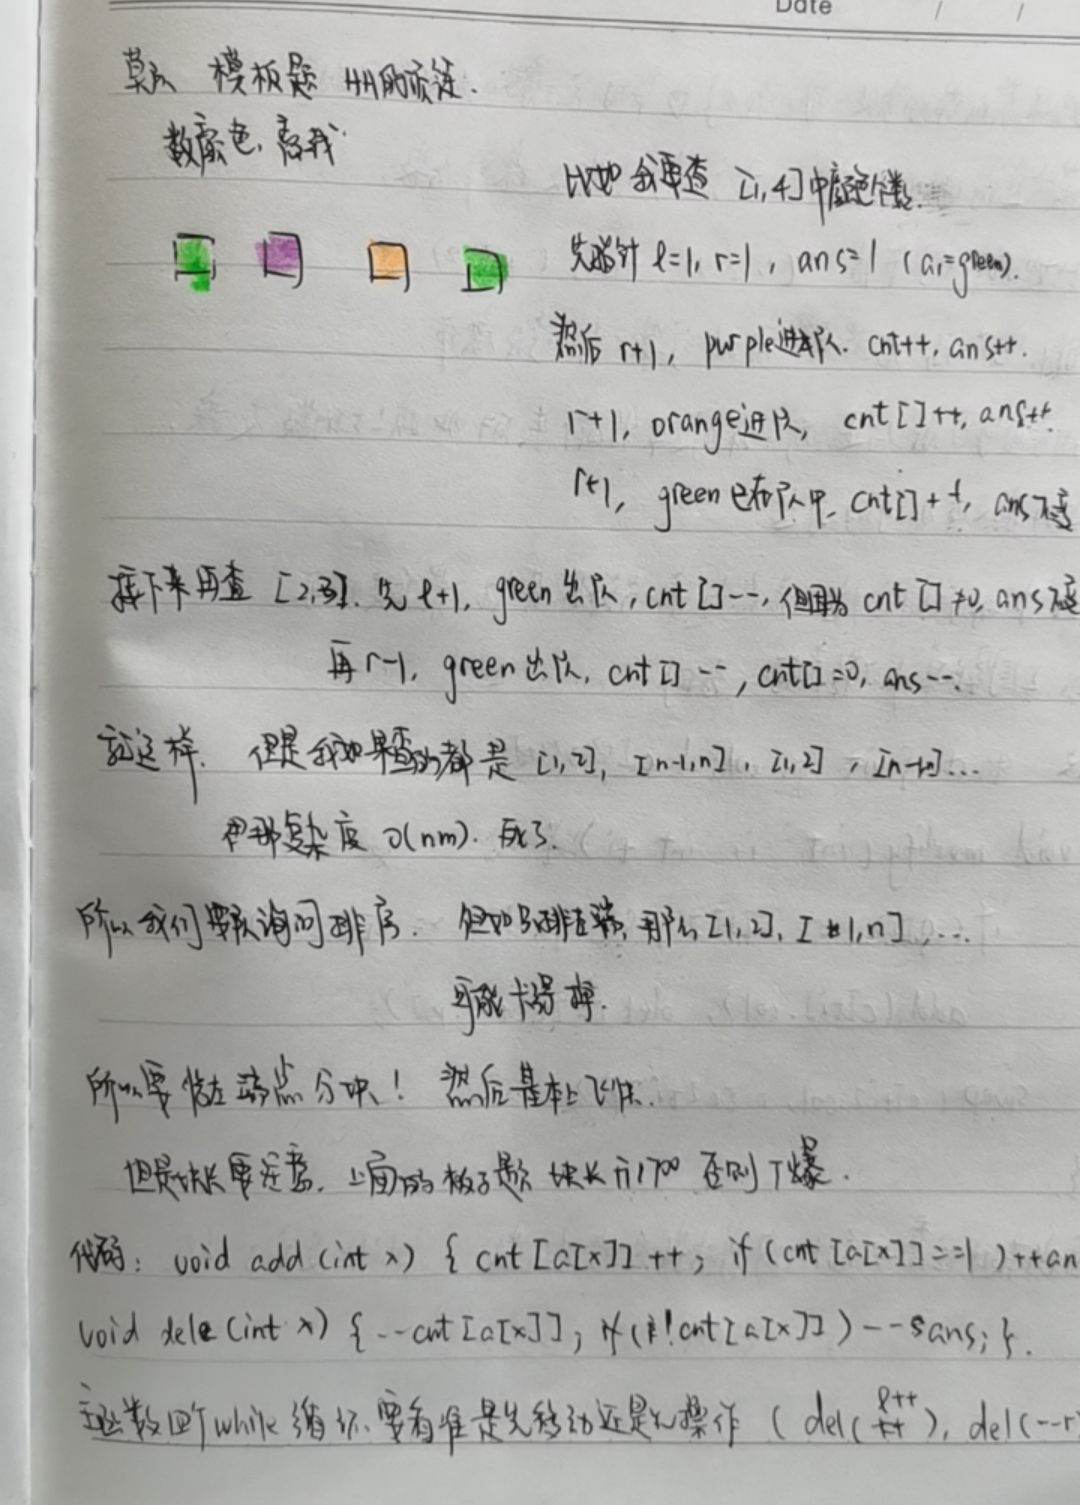 Date / /
莫队 模板题 HH的项链.
数颜色.
比如 我要查 [1,4]中颜色个数.
先指针 l=1, r=1, ans=1 (a₁=green).
然后 r+1, purple进队. cnt++, ans++.
r+1, orange进队, cnt[]++, ans++
r+1, green已在队中, cnt[]++, ans不变
接下来再查 [2,3]. 先 l+1, green出队, cnt[]--, 但因为 cnt[]≠0, ans不变
再 r-1, green出队, cnt[]--, cnt[]=0, ans--.
就这样. 但是我如果查的都是 [1,2], [n-1,n], [1,2], [n-1,n]...
那复杂度 O(nm). 死了.
所以我们要对询问排序. 但如只排左端, 那么[1,2], [1,n], ...
可能卡得掉.
所以要给左端点分块! 然后基本上飞快.
但是块长要注意. 上面的板子题 块长开1700 否则T爆.
代码: void add (int x) { cnt[a[x]]++; if (cnt[a[x]]==1) ++an
void dele (int x) { --cnt[a[x]]; if (!cnt[a[x]]) --ans; }.
主函数四个while循环 要看准是先移动还是先操作 ( del(l++), del(--r)